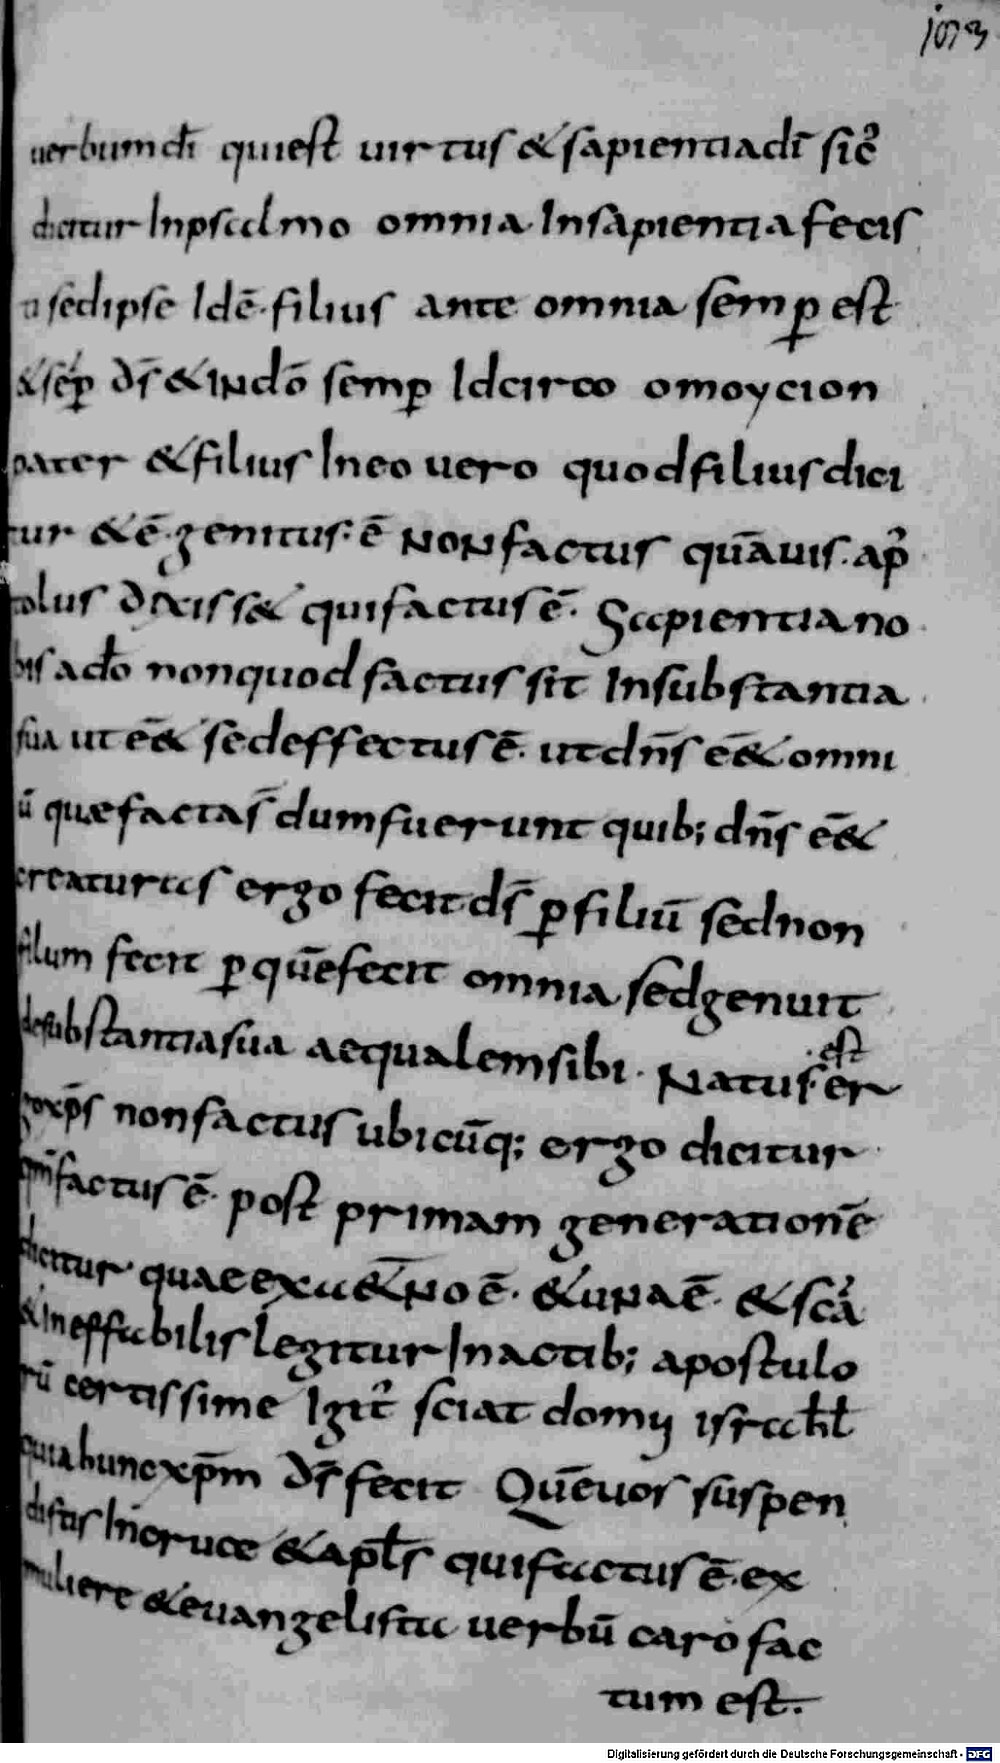 103
uerbum dī qui est uirtus & sapientia dī sic̄
dicitur In psalmo omnia In sapientia fecis
ti sed ipse Idē filius ante omnia semꝑ est
& sēꝑ d̄s & in dō semꝑ Idcirco omoycion
pater & filius In eo uero quod filius dici
tur & ē genitus ē non factus quāuis apr̄
tolus dixiss& qui factus ē Sapientia no
bis a dō non quod factus sit In substantia
sua ut ēē& sed effectus ē ut dn̄s ēē& omni
ū quae facta s̄ dum fuerunt quib; dn̄s ēē&
creaturas ergo fecit d̄s ꝑ filiū sed non
filum fecit ꝑ quē fecit omnia sed genuit
de substantia sua aequalem sibi. Natus est er
go xp̄s non factus ubicūq; ergo dicitur
qm̄ factus ē post primam generationē
dicitur quae ex a&̄no ē & una ē & scā
& ineffabilis legitur In actib; apostulo
rū certissime Igit̄ sciat domꝰ israhl̄
quia hunc xp̄m d̄s fecit Quē uos suspen
distis In cruce & apl̄s qui factus ē ex
muliere & euangelista uerbū caro fac
tum est.
Digitalisierung gefördert durch die Deutsche Forschungsgemeinschaft - DFG